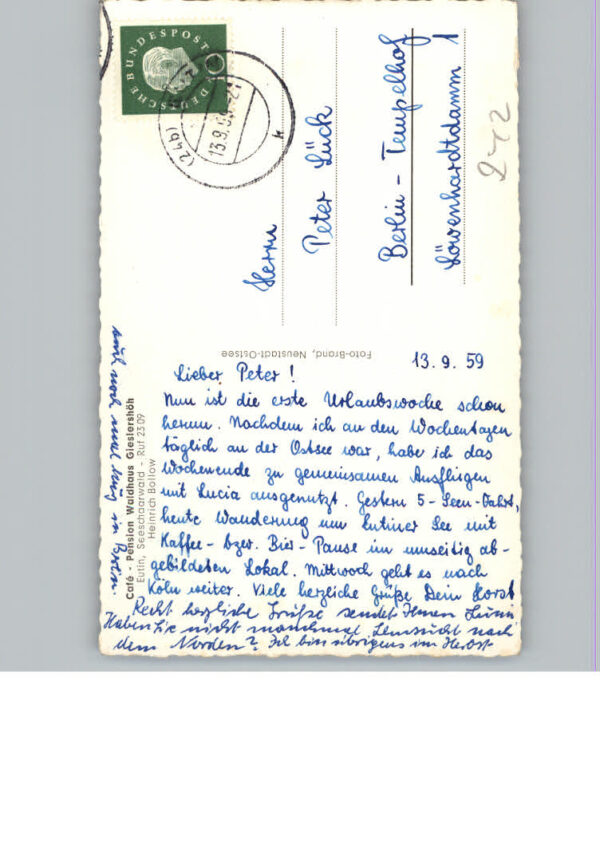 DEUTSCHE BUNDESPOST
(24b)
13.9.59
k
Herrn
Peter Lück
Berlin - Tempelhof
Löwenhardtdamm 1
242
Foto-Brand, Neustadt-Ostsee
Café - Pension Waldhaus Gieslershöh
Eutin, Seeschaarwald - Ruf 23 09
Heinrich Bollow
13.9.59
Lieber Peter!
Nun ist die erste Urlaubswoche schon
herum. Nachdem ich an den Wochentagen
täglich an der Ostsee war, habe ich das
Wochenende zu gemeinsamen Ausflügen
mit Lucia ausgenutzt. Gestern 5-Seen-Fahrt,
heute Wanderung um Eutiner See mit
Kaffee- bzw. Bier-Pause im umseitig ab-
gebildeten Lokal. Mittwoch geht es nach
Köln weiter. Viele herzliche Grüße Dein Horst
Recht herzliche Grüße sendet Ihnen
Haben Sie nicht manchmal Sehnsucht nach
dem Norden? Ich bin übrigens im Herbst
auch noch mal in